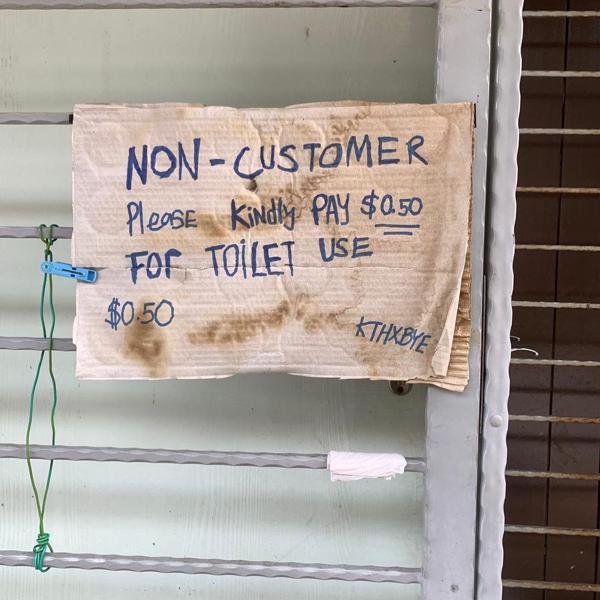 NON-CUSTOMER
Please Kindly PAY $0.50
FOR TOILET USE
$0.50
KTHXBYE